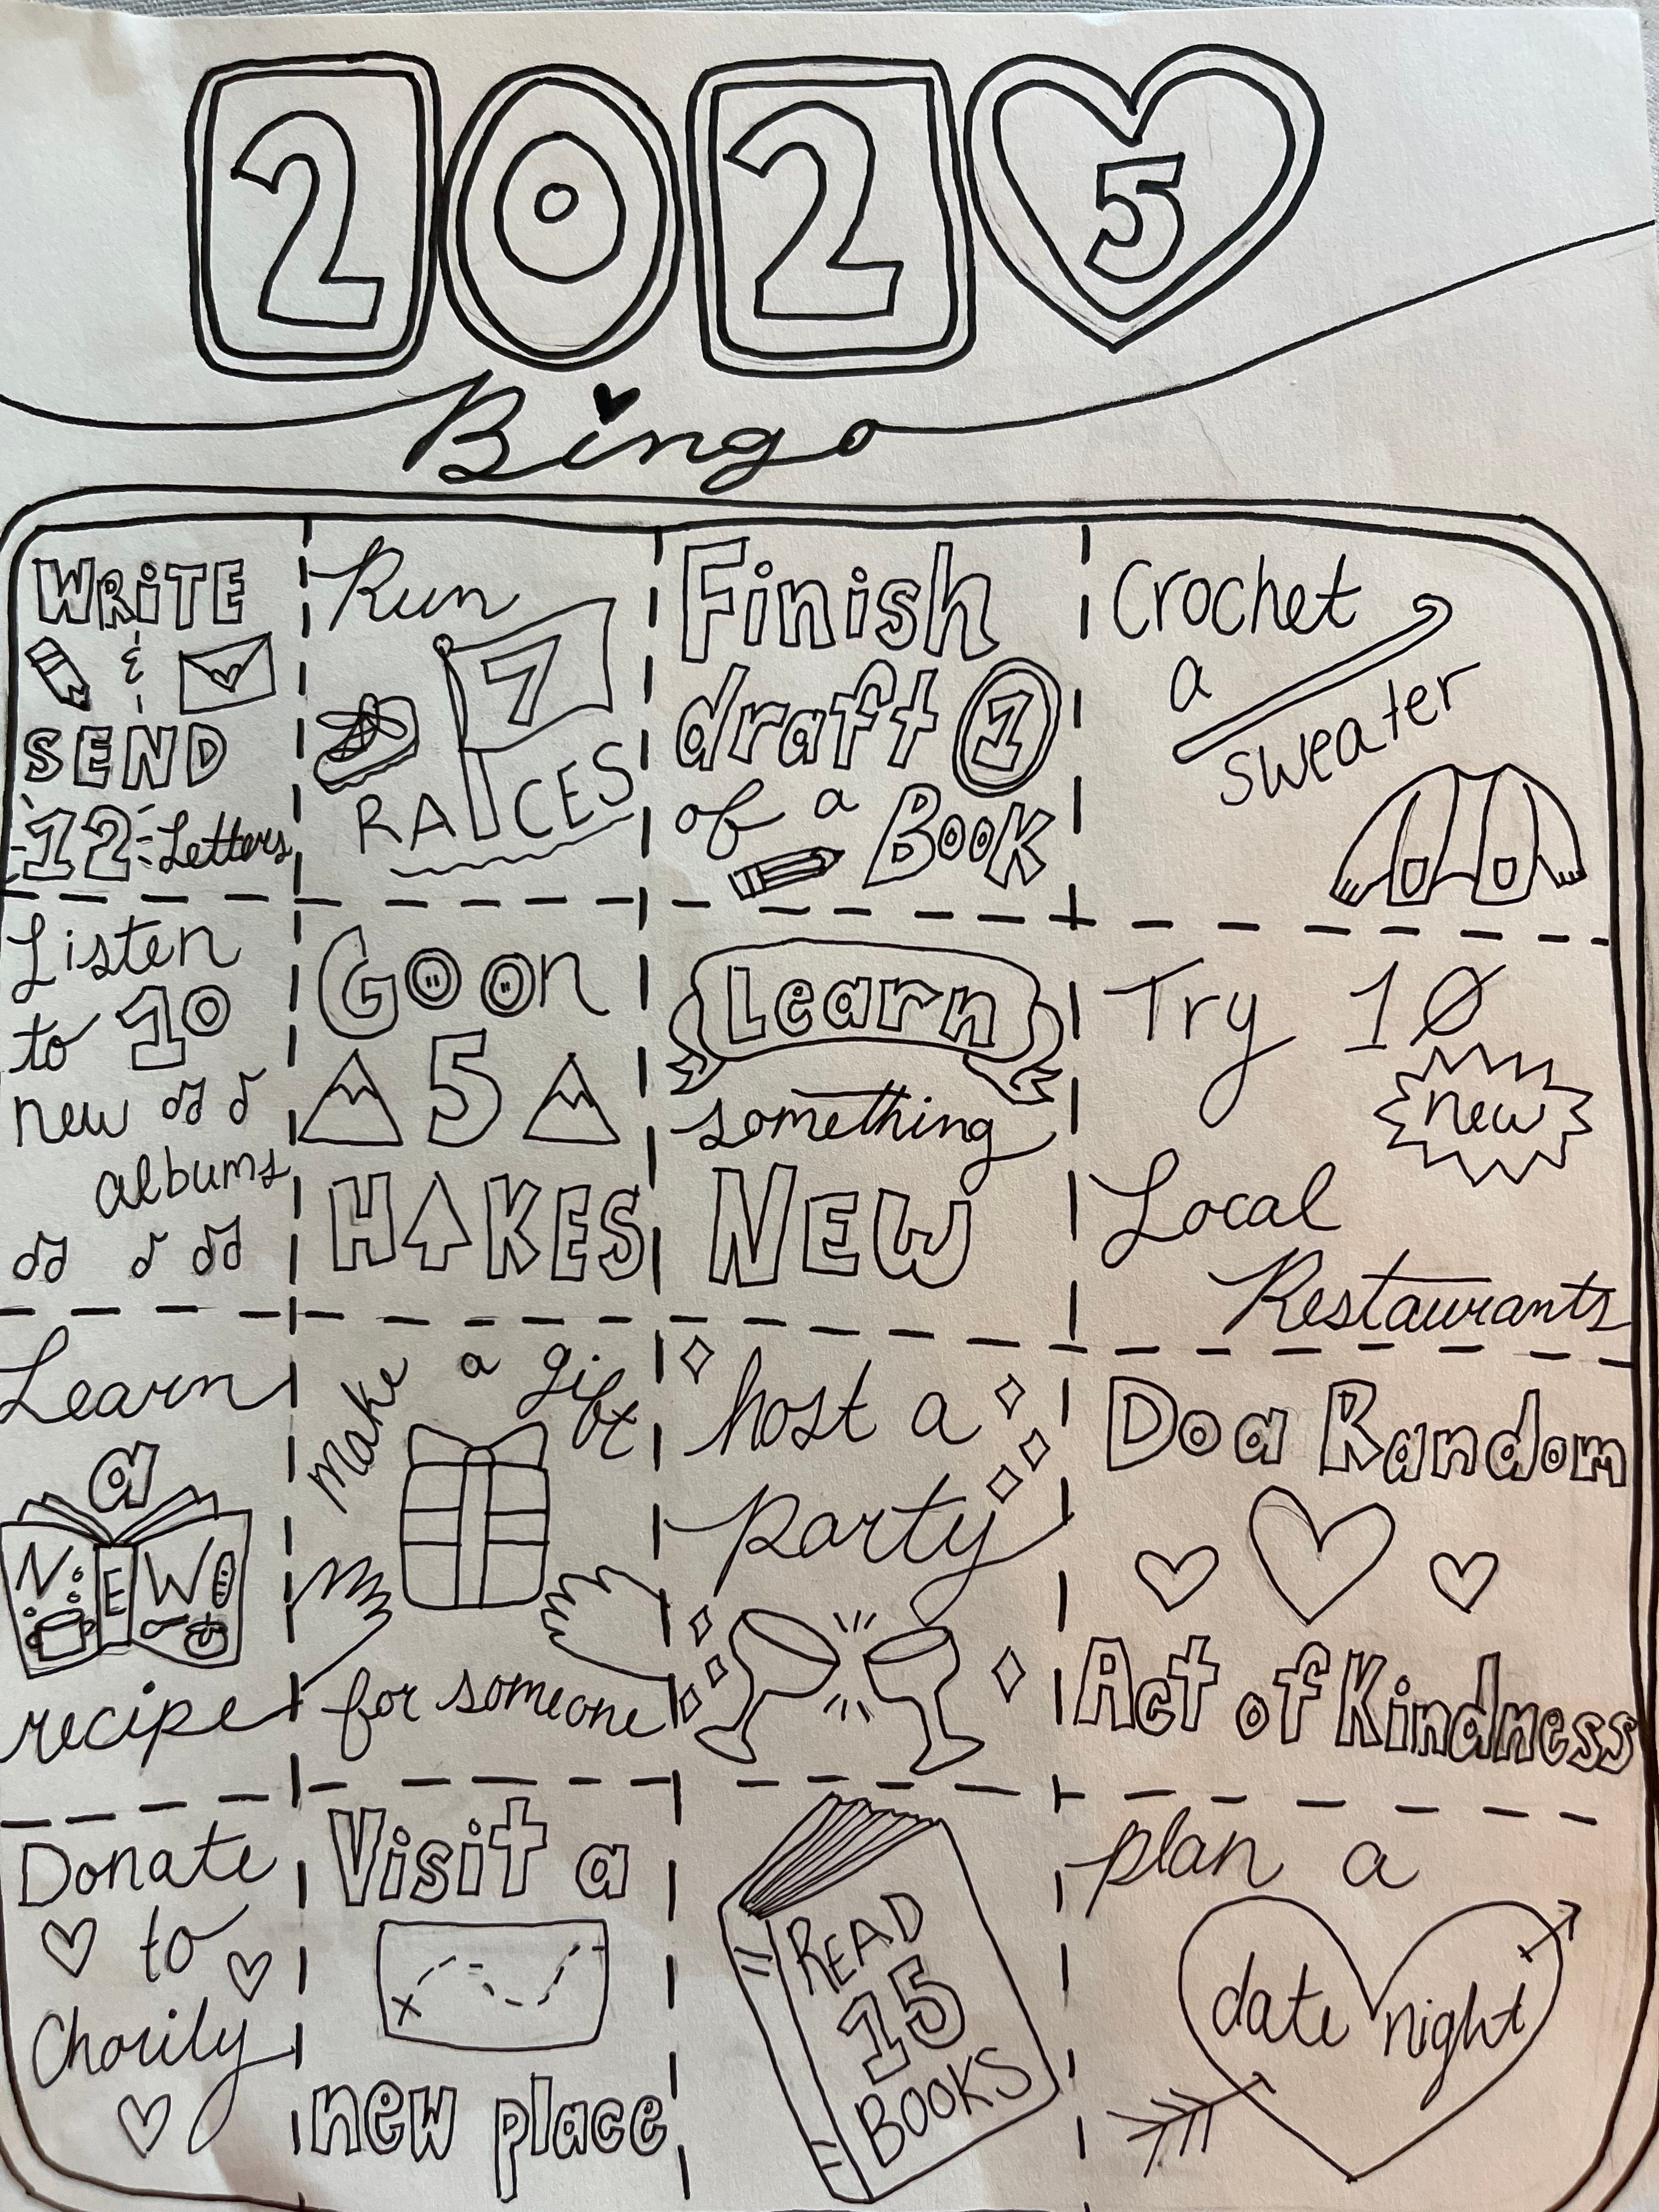 2025
Bingo
WRiTE
&
SEND
12 Letters
Run
7
RACES
Finish
draft 1
of a
BOOK
Crochet
a
sweater
Listen
to 10
new
albums
Go on
5
HIKES
Learn
something
NEW
Try 10
new
Local
Restaurants
Learn
a
NEW
recipe
make a gift
for someone
host a
party
Do a Random
Act of Kindness
Donate
to
Charity
Visit a
new place
READ
15
BOOKS
plan a
date night